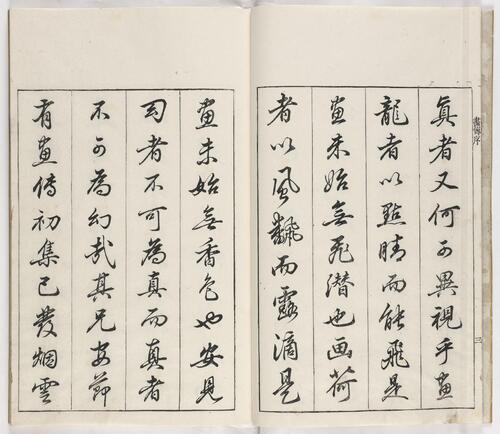 真者又何可異視乎畫
龍者以點睛而能飛是
畫未始無飛潛也画荷
者以風飄而露滴是
畫未始無香色也安見
幻者不可為真而真者
不可為幻哉其兄安節
有畫傳初集已發烟雲
畫傳序
三